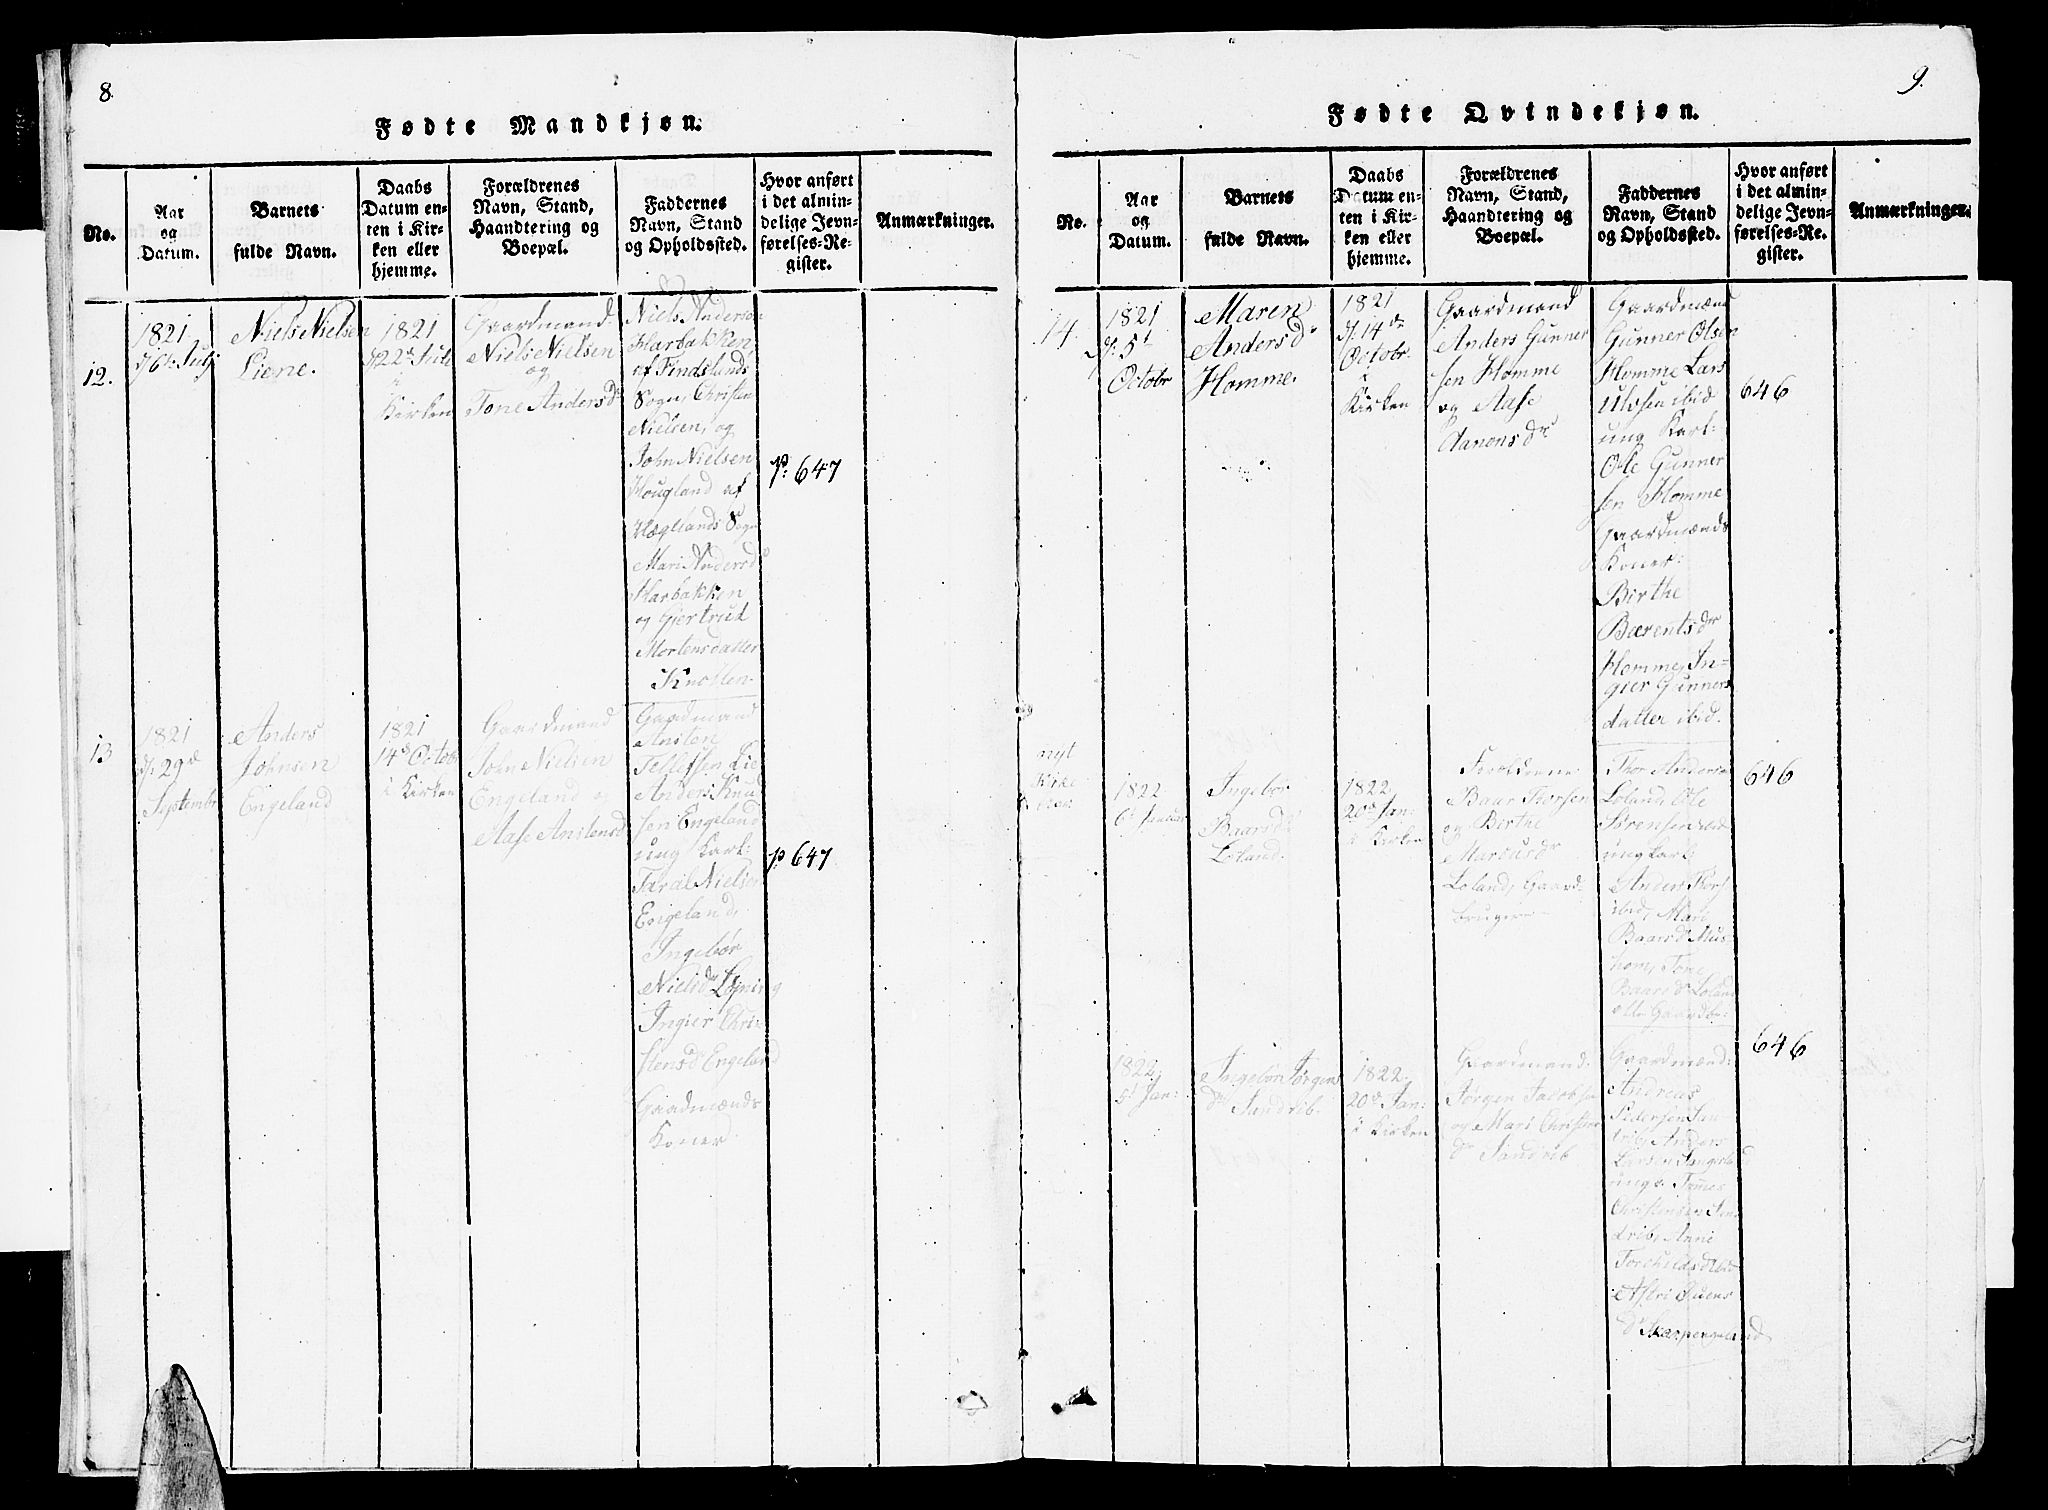 8
Fødte Mandkjøn.
No.
Aar
og
Datum.
Barnets
fulde Navn.
Daabs
Datum en-
ten i Kir-
ken eller
hjemme.
Forældrenes
Navn, Stand,
Haandtering og
Boepæl.
Faddernes
Navn, Stand
og Opholdssted.
Hvor anført
i det almin-
delige Jevn-
førelses-Re-
gister.
Anmærkninger.
12.
1821
d/6te Julj
Niels Nielsen
Liene.
1821
d/22de Julj
i
Kirken
Gaardmand
Niels Nielsen
og
Tone Andersdr
Niels Anderson
Harbakken
af Findslands
Sogn, Christen
Nielsen, og
John Nielsen
Hougland af
Hæglands Sogn
Mari Andersd
Harbakken
og Gjertrud
Mortensdatter
p. 647
13
1821
d. 29de
Septembr
Anders
Johnsen
Engeland
1821
14de Octobr
i Kirken
Gaardmand
John Nielsen
Engeland og
Aase Anstensd
Gaardmand
Ansten
Tellefsen Lie
Anders Knud
sen Engeland
ung Karl:
Taral Nielsen
Engeland,
Ingebör
Nielsdr Løyning
Ingier Chri-
stensdr Engeland
Gaardmænds
Koner
p 647
9.
Fødte Qvindekjøn.
No.
Aar
og
Datum.
Barnets
fulde Navn.
Daabs
Datum en-
ten i Kir-
ken eller
hjemme.
Forældrenes
Navn, Stand,
Haandtering og
Boepæl.
Faddernes
Navn, Stand
og Opholdssted.
Hvor anført
i det almin-
delige Jevn-
førelses-Re-
gister.
Anmærkninger.
14
1821
d. 5te
Octobr
Maren
Andersdr
Homme.
1821
d. 14de
Octobr.
i
Kirken
Gaardmand
Anders Gunner
sen Homme
og Aase
Aanonsdr
Gaardmænd
Gunner Olsen
Homme Lars
Ulvsen ibid
ung Karl:
Ole Gunner
sen Homme
Gaardmænds
Koner:
Birthe
Bærentsdr
Homme, In-
gier Gunners
datter ibid.
646
nyt
Kirke
Aar
1822
6te Januar
Ingebör
Baarsdr
Loland.
1822
20de Jan:
i Kirken
Forældrene
Baar Thorsen
og Birthe
Loland, Gaard-
brugere
Thor Anders
Loland, Ole
Sørensen ibid
ung karl:
Anders Thors
ibid, Mari
Baarsdr
Tone
Baarsdr Loland
646
1822
5te Jan:
Ingebör Jörgens
dr Sandrib.
1822
20de Jan:
i Kirken
Gaardmand
Jørgen Jacobsen
og Mari Christens
dr Sandrib
Gaardmænd:
Andreas
Pedersen San
drib, Anders
Larsen
ungk. Tomes
Christensen San
drib, Anne
Torkildsdr ibid
646